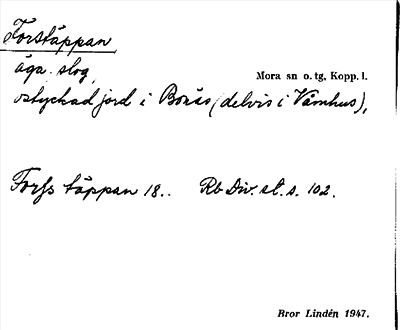 Forstäppan
äga. slog,
Mora sn o. tg, Kopp. l.
ostyckad jord i Bonäs (delvis i Våmhus),
Forss täppan 18.. Rb Div. st. s. 102.
Bror Lindén 1947.